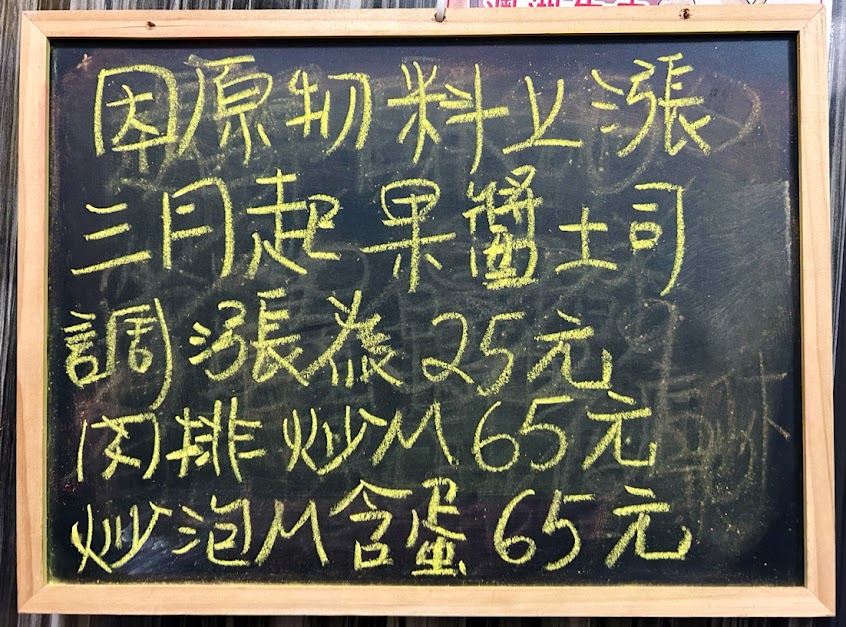 因原物料上漲
三月起 果醬土司
調漲為 25元
肉排炒M 65元
炒泡M含蛋 65元